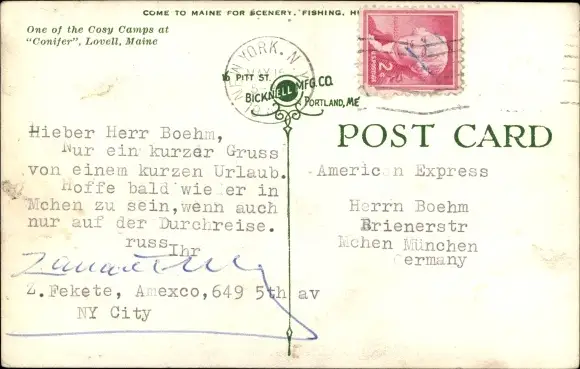 COME TO MAINE FOR SCENERY, FISHING,
One of the Cosy Camps at
"Conifer", Lovell, Maine
NEW YORK, N.Y.
2¢
16 PITT ST.
BICKNELL MFG. CO.
PORTLAND, ME
POST CARD
Hieber Herr Boehm,
Nur ein kurzer Gruss
von einem kurzen Urlaub.
Hoffe bald wieder in
Mchen zu sein,wenn auch
nur auf der Durchreise.
russ Ihr
Z.Fekete, Amexco,649 5th av
NY City
American Express
Herrn Boehm
Brienerstr
Mchen München
Germany